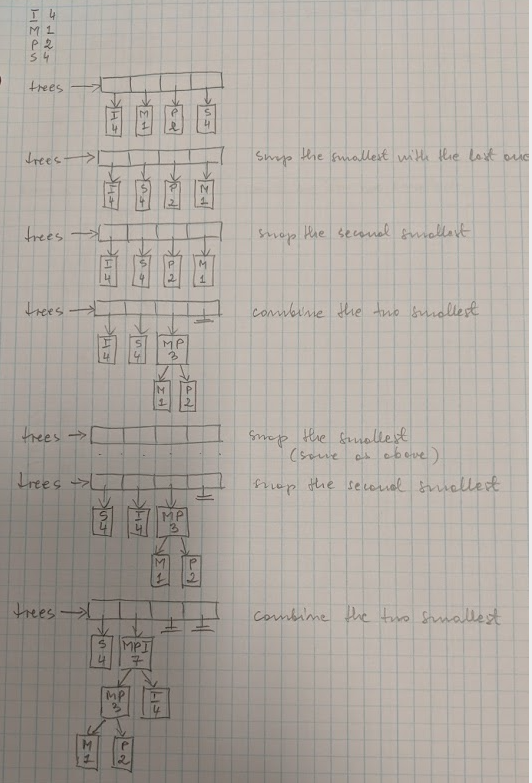 I 4
M 1
P 2
S 4
trees
I M P S
4 1 2 4
trees swap the smallest with the last one
I S P M
4 4 2 1
trees swap the second smallest
I S P M
4 4 2 1
trees combine the two smallest
I S MP
4 4 3
M P
1 2
trees swap the smallest
(same as above)
trees swap the second smallest
S I MP
4 4 3
M P
1 2
trees combine the two smallest
S MPI
4 7
MP I
3 4
M P
1 2